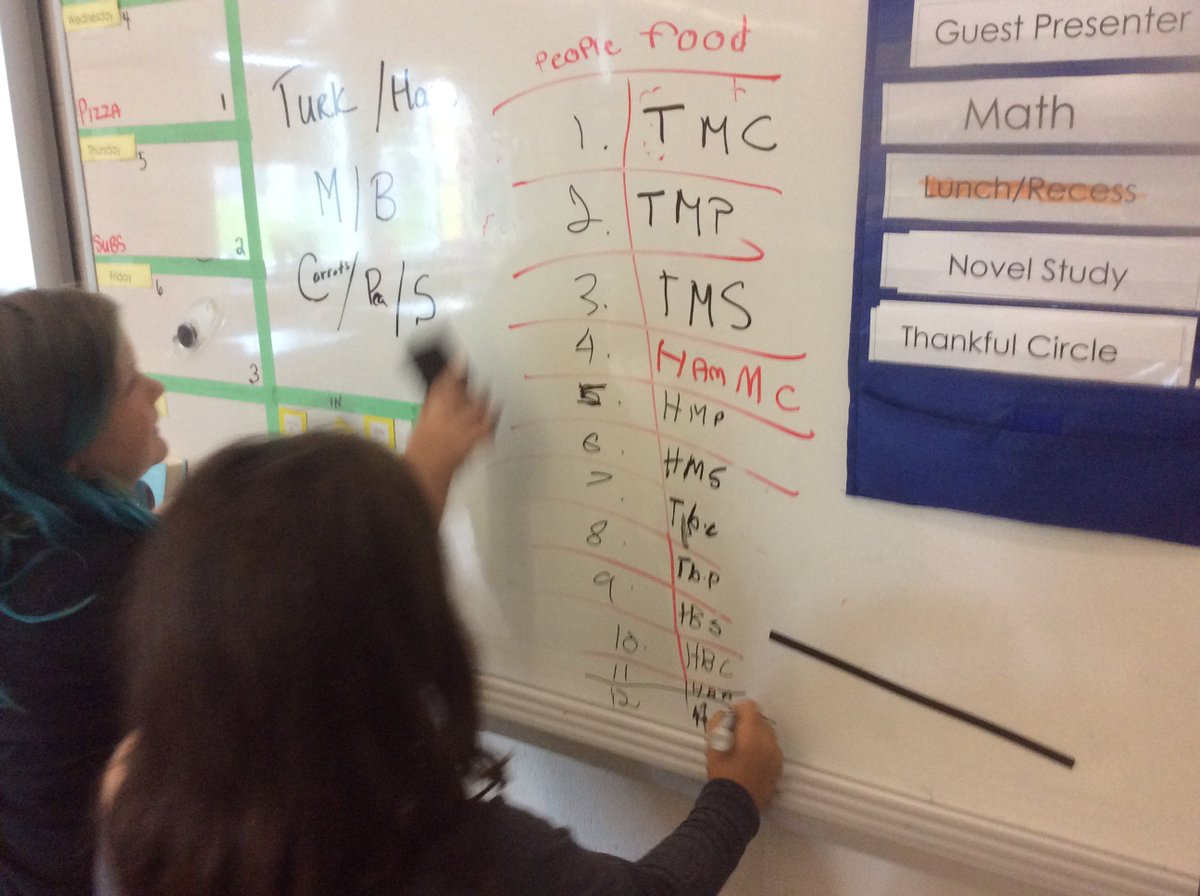 Wednesday 4
PIZZA 1
Thursday 5
SUBS 2
Friday 6
3
Turk/Ha
M/B
Carrots/Pea/S
IN
People food
1. TMC
2. TMP
3. TMS
4. HAM M C
5. HMP
6. HMS
7.
8. Tb.P
9. HBS
10. HBC
11
12
Guest Presenter
Math
Lunch/Recess
Novel Study
Thankful Circle